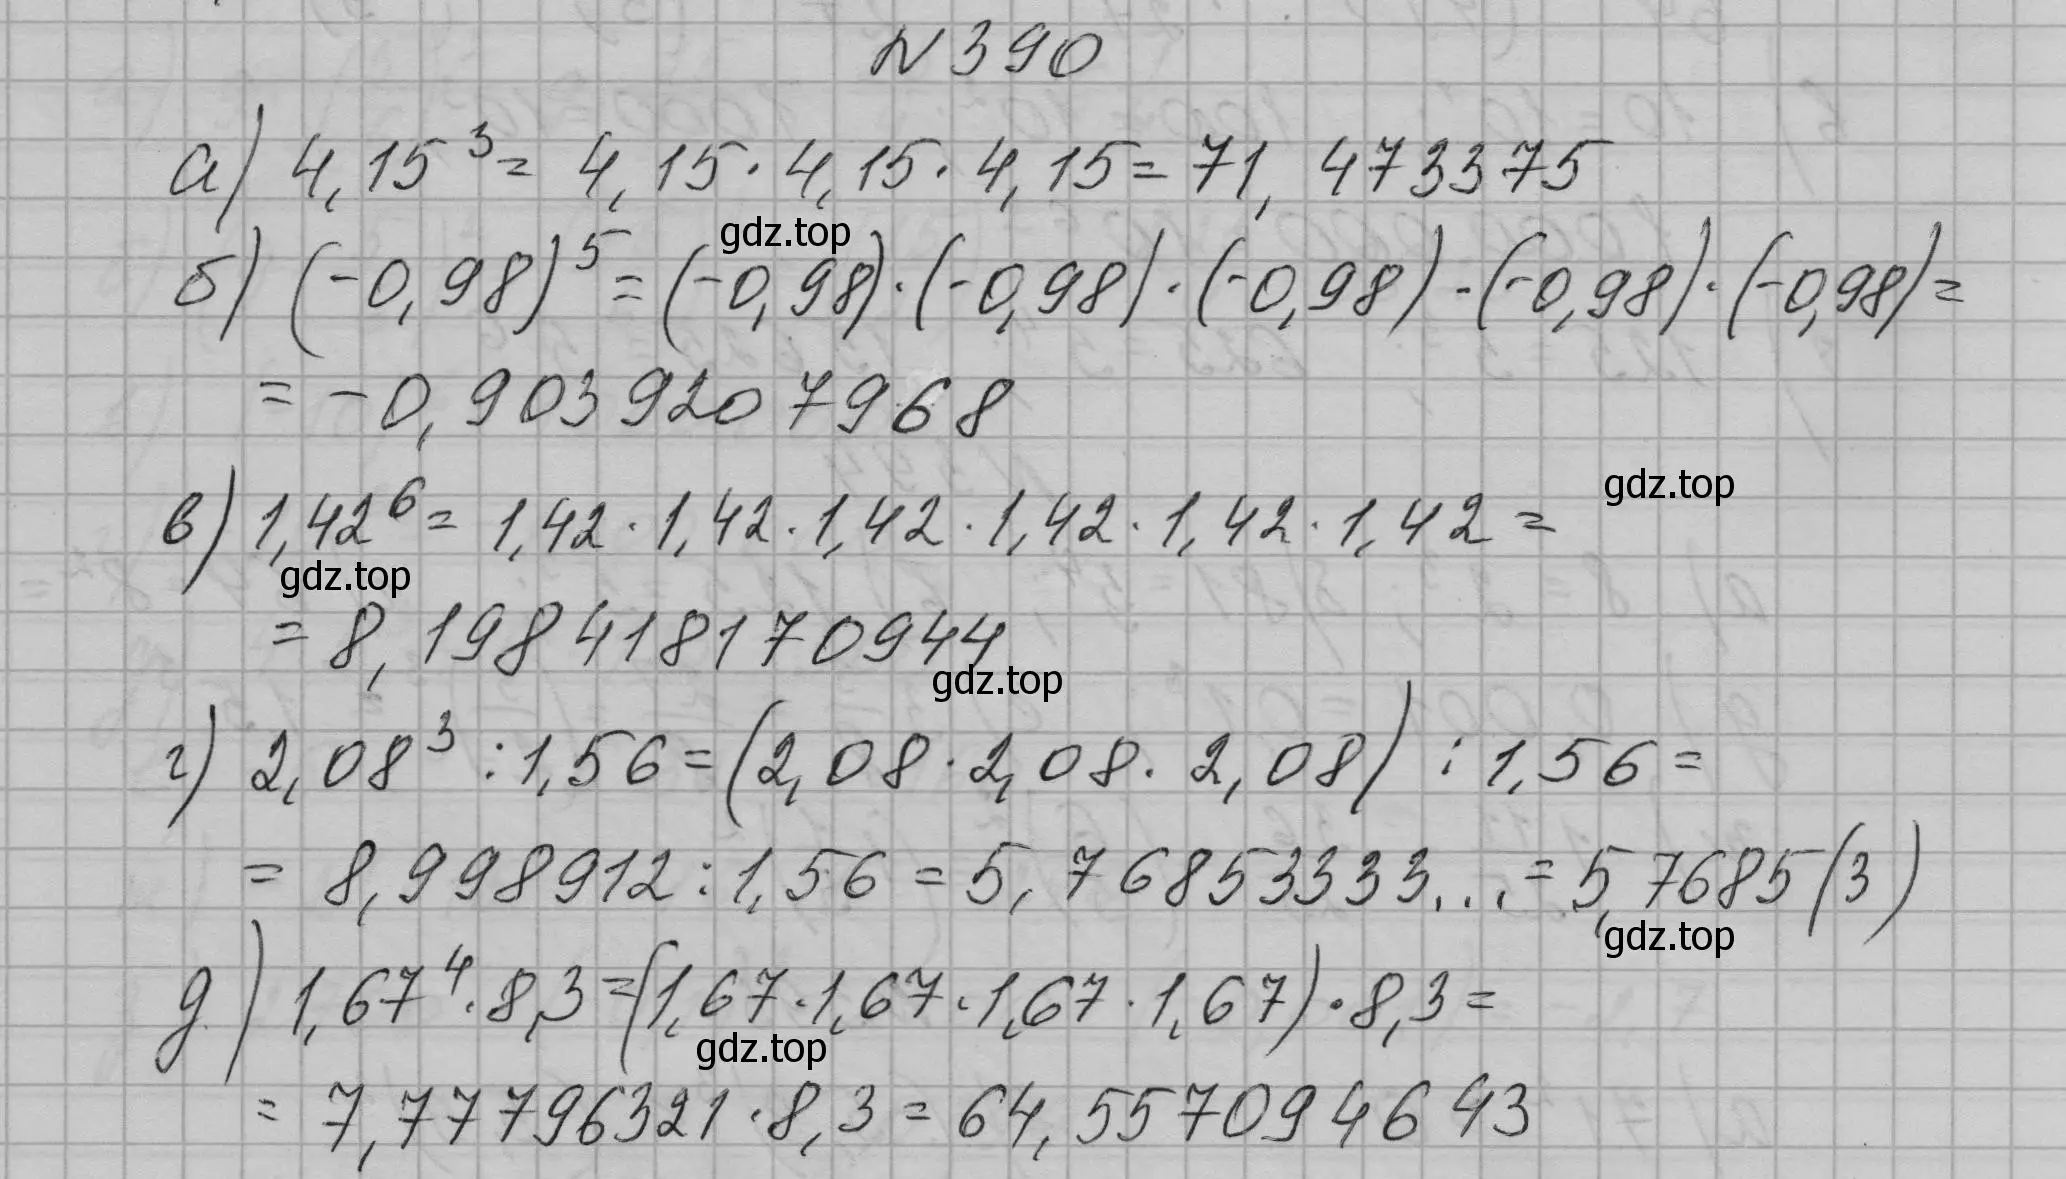 N 390
а) 4,15³ = 4,15 · 4,15 · 4,15 = 71,473375
gdz.top
б) (-0,98)⁵ = (-0,98) · (-0,98) · (-0,98) · (-0,98) · (-0,98) =
= -0,9039207968
gdz.top
в) 1,42⁶ = 1,42 · 1,42 · 1,42 · 1,42 · 1,42 · 1,42 =
gdz.top
= 8,198418170944
gdz.top
г) 2,08³ : 1,56 = (2,08 · 2,08 · 2,08) : 1,56 =
= 8,998912 : 1,56 = 5,76853333... = 5,7685(3)
gdz.top
д) 1,67⁴ · 8,3 = (1,67 · 1,67 · 1,67 · 1,67) · 8,3 =
gdz.top
= 7,77796321 · 8,3 = 64,557094643